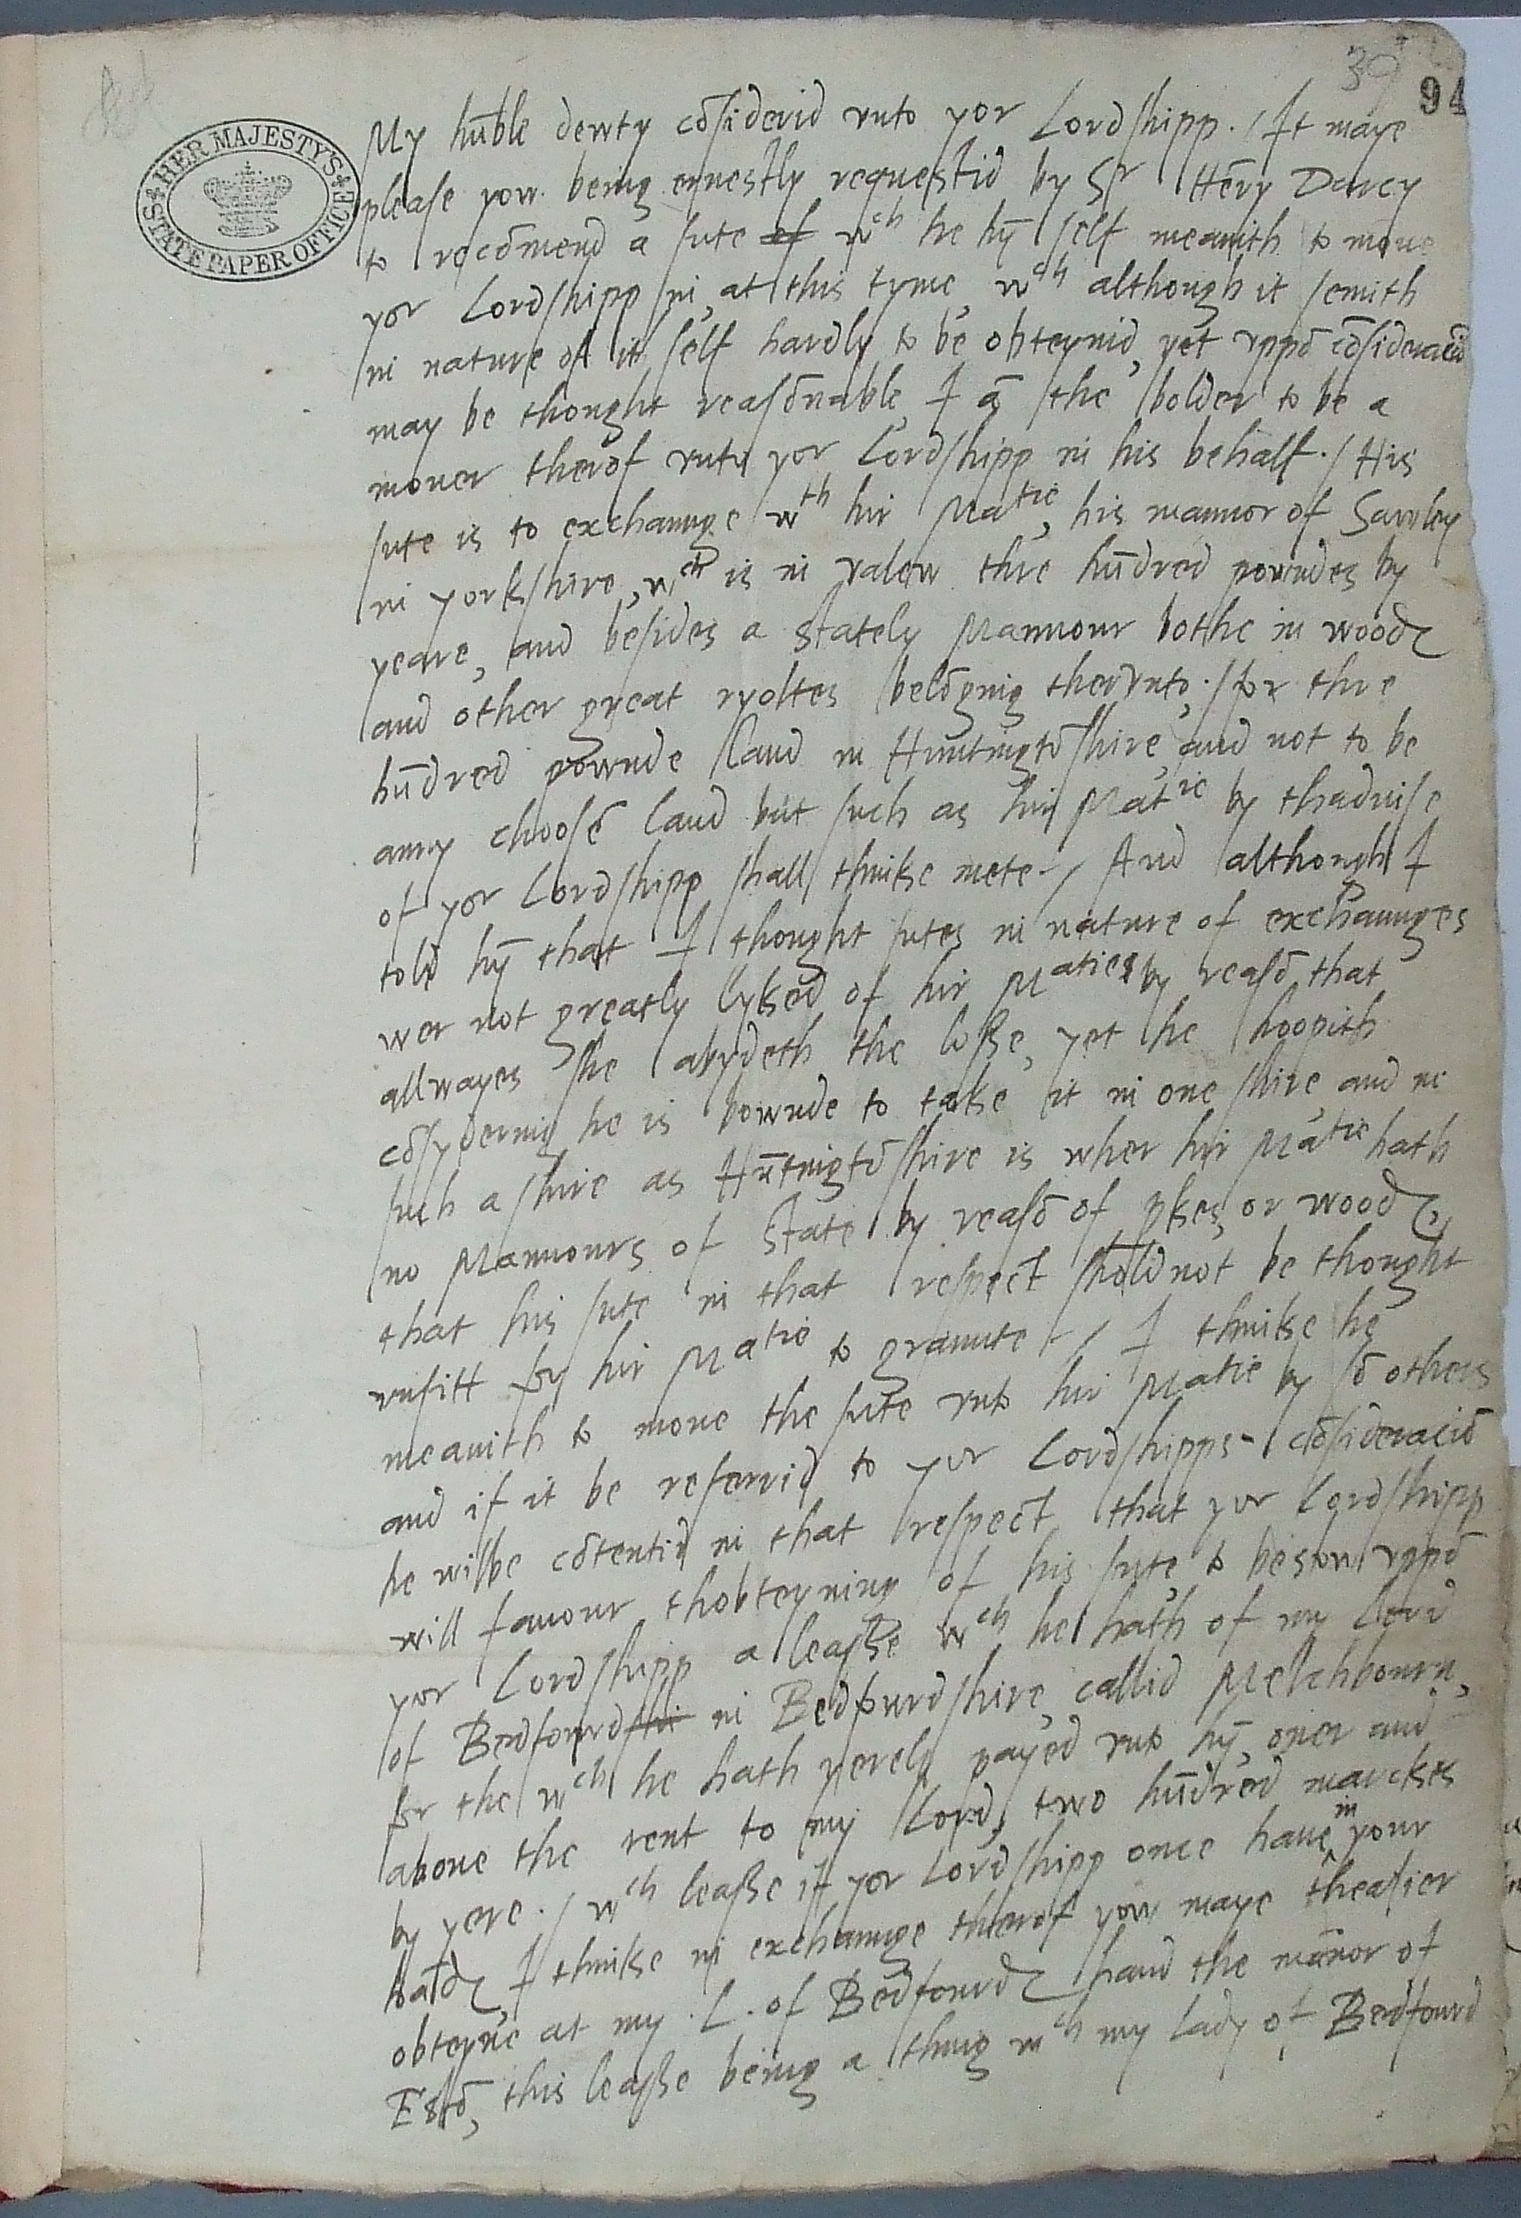 39
94
HER MAJESTY'S
STATE PAPER OFFICE
My hūble dewty cōsiderid vnto yor Lordshipp ./ It maye
please yow being ernestly requestid by Sr Hēry Darcy
to recōmend a sute of wch he hȳ self meanith to moue
yor Lordshipp in, at this tyme, wch although it semith
in nature of it self hardly to be obteynid, yet vppō cōsideraciō
may be thought reasōnable, I ā the bolder to be a
mouer therof vnto yor Lordshipp in his behalf ./ His
sute is to exchaunge wth hir Matie, his mannor of
in yorkshire, wch is in valew thre hūdred powndes by
yeare, and besides a stately Mannour bothe in woodes
and other great ryoltes belōging thervnto ./ for thre
hūdred pownde land in Huntingtōshire, and not to be
anny choosē land but such as hir Matie by thaduise
of yor Lordshipp shall thinke mete -/ And although I
told hȳ that I thought sutes in nature of exchaunges
wer not greatly lyked of hir Matie, by reasō that
allwayes she abydeth the losse, yet he hoopith
cōsydering he is bownde to take it in one shire and in
such a shire as Hūtingtōshire is wher hir Matie hath
no Mannours of state by reasō of pkes, or woodes,
that his sute in that respect shold not be thought
vnfitt for hir Matie to graunte -/ I thinke he
meanith to moue the sute vnto hir Matie by sō others
and if it be referrid to yor Lordshipps cōsideraciō
he wilbe cōtentid in that respect that yor Lordshipp
will fauour thobteyning of his sute, to bestow vppō
yor Lordshipp a leasse wch he hath of my Lord
of Bedfourdshi in Bedfourdshire, callid Melchbourn,
for the wch he hath yerely payed vnto hȳ, ouer and
aboue the rent to my Lord, two hūdred marckes
by yere ./ wch leasse if yor Lordshipp once haue in your
handes, I thinke in exchaunge therof yow maye theasier
obteyne at my .L. of Bedfourdes hand the mānor of
Estō, this leasse being a thing wch my Lady of Bedfourd